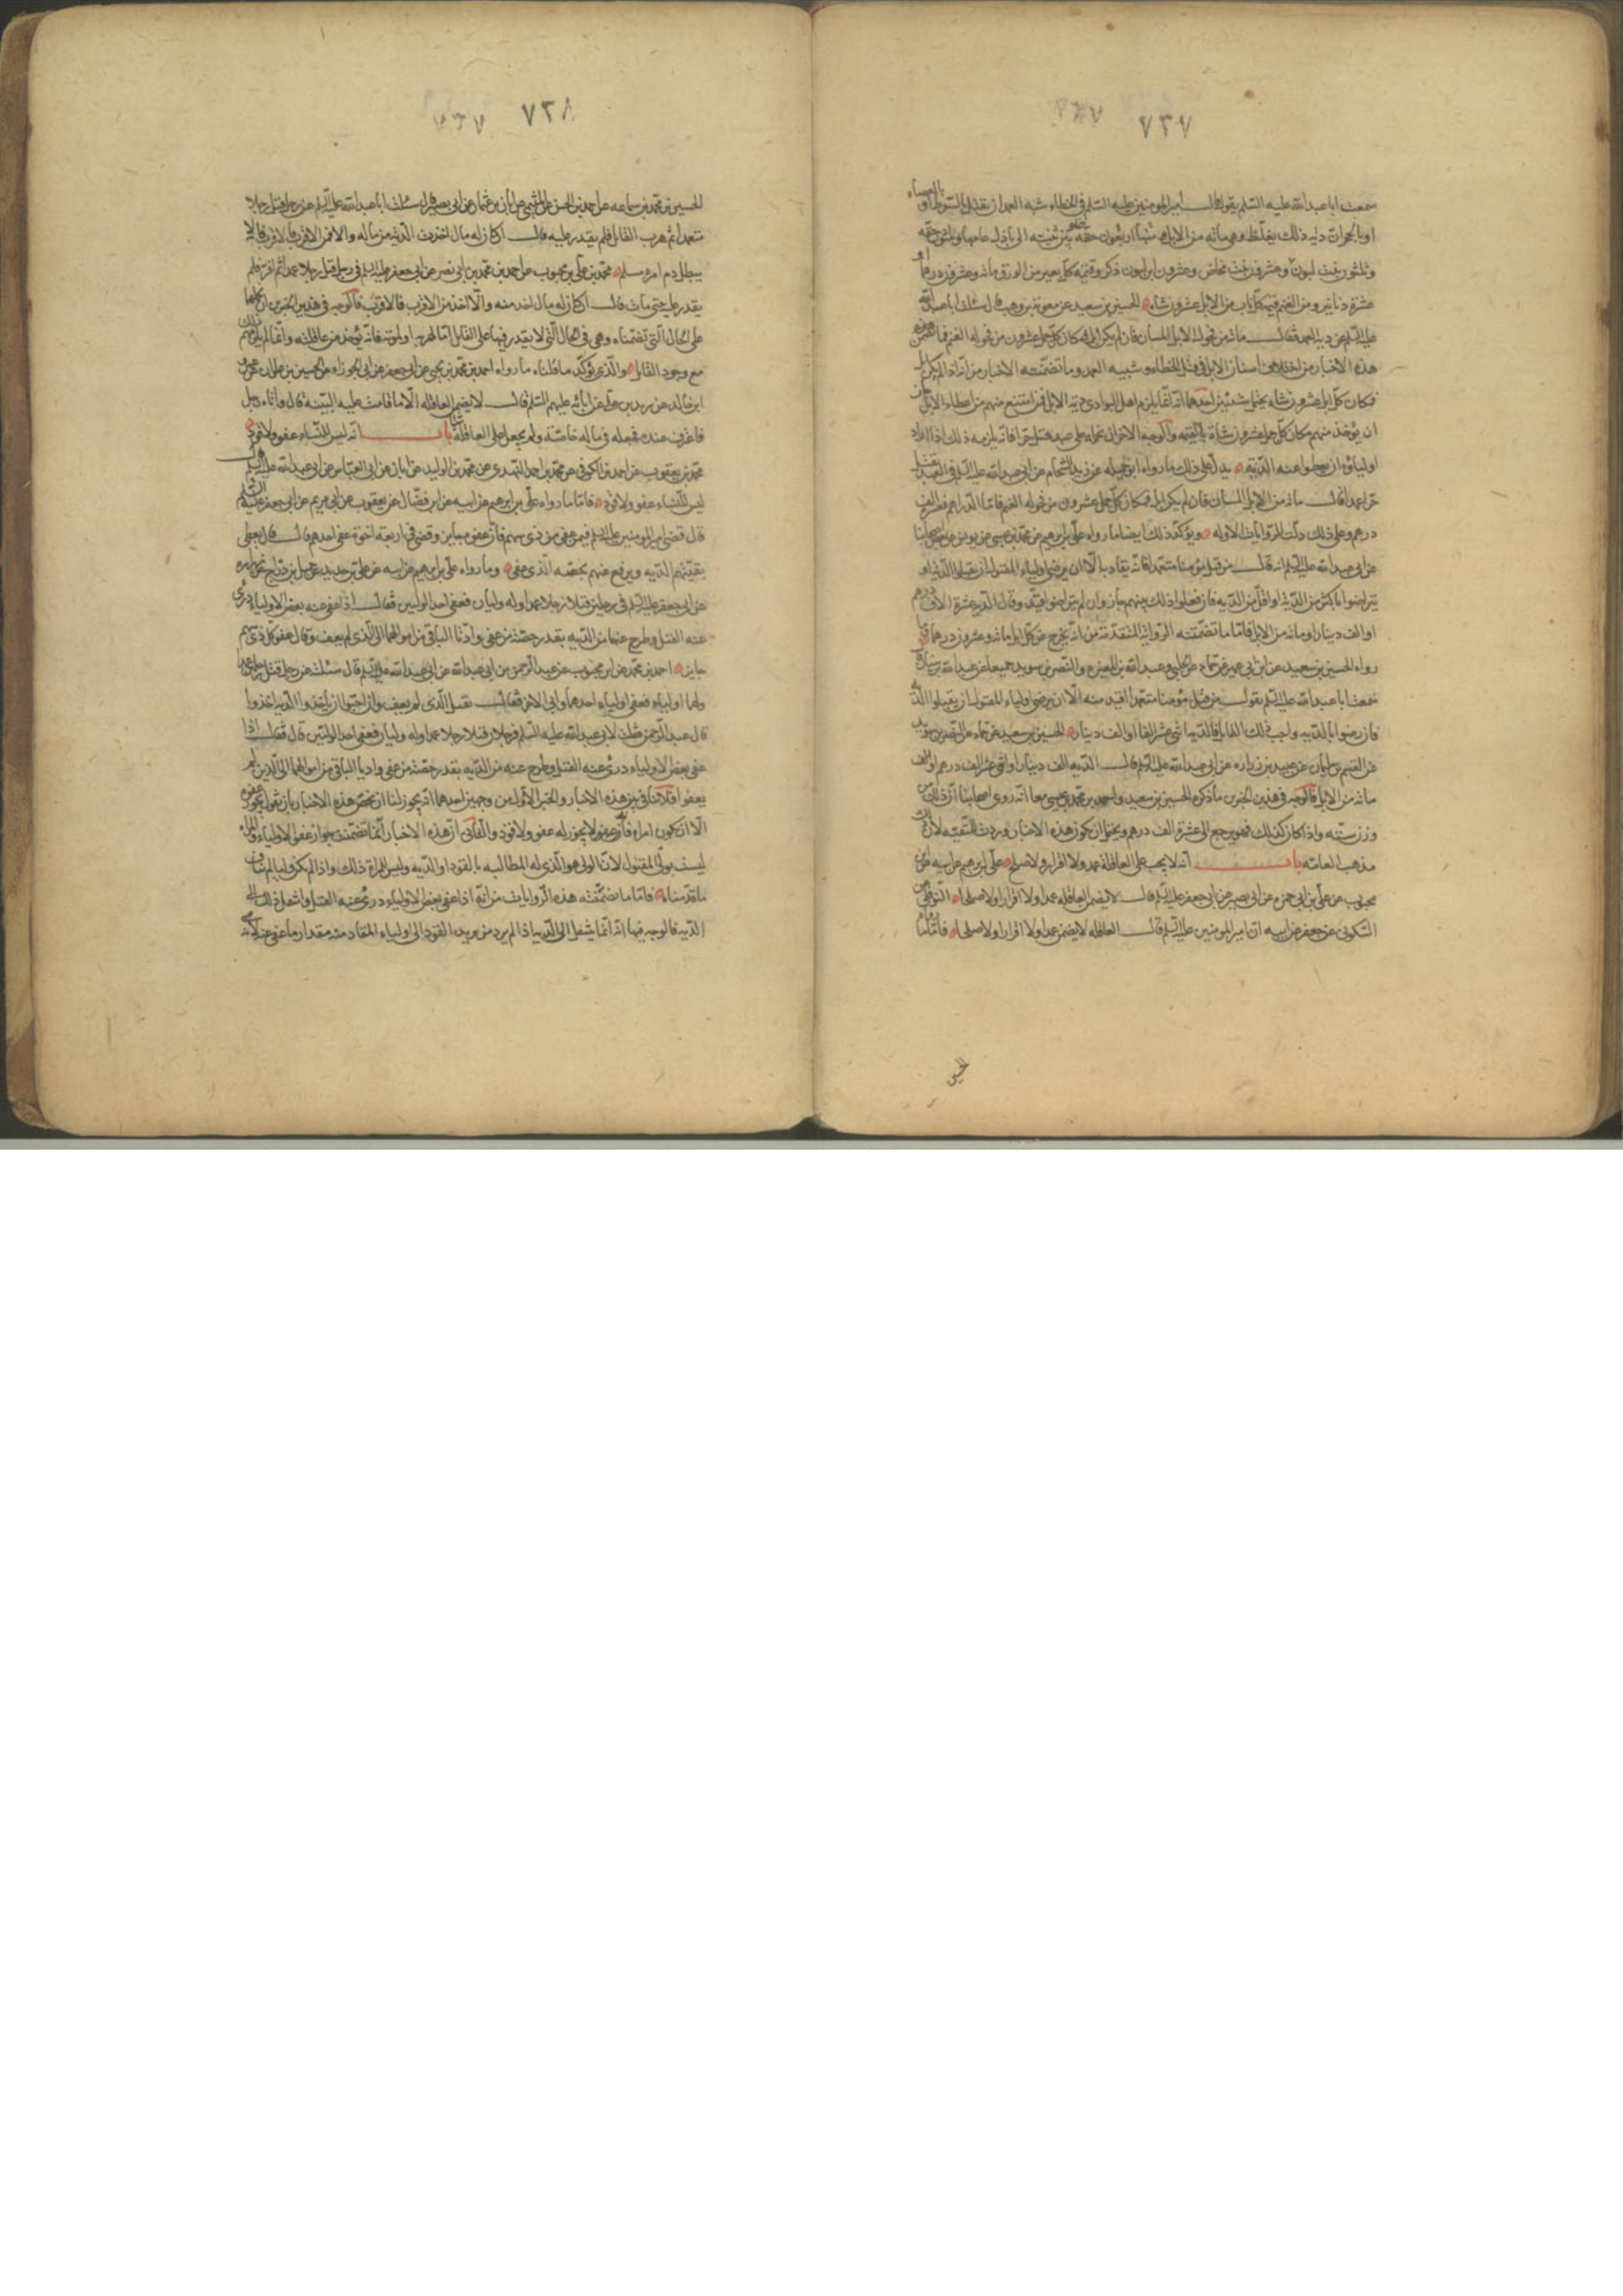 ٧٣٧
سمعت ابا عبد الله عليه السلم يقول قال امير المومنين عليه السلم فى الخطاء شبه العمد ان يقتل بالسوط او بالعصاء
او بالحجارة ان دية ذلك يغلظ وهى مائه من الابل منها اربعون خلفه بين ثنيته الى بازل عامها وثلثون حقه
وثلثون بنت لبون وعشرون بنت مخاض وعشرون ابن لبون ذكر وقيمه كل بعير من الورق مائه وعشرون درهما او
عشرة دنانير ومن الغنم قيمة كل ناب من الابل عشرون شاه الحسين بن سعيد عن معوية بن وهب قال سئلت ابا عبد الله
عليه السلم عن دية العمد فقال مائة من فحولة الابل المسان فان لم يكن ابل فمكان كل جمل عشرون من فحولة الغنم فما تضمن
هذه الاخبار من اختلاف اسنان الابل فى قتل الخطاء وشبيه العمد وما تضمنته الاخبار من انه اذا لم يكن ابل
فمكان كل ابل عشرون شاه يحتمل شيئين احدهما انه انما يلزم اهل البوادى دية الابل فمن امتنع منهم من اعطاء الابل جاز
ان يؤخذ منهم مكان كل جمل عشرون شاة بالقيمه والوجه الاخر ان نحمله على عبد قتل حرا فانه يلزمه ذلك اذا اراد
اولياؤه ان يعطوا عنه الدية يدل على ذلك ما رواه ابو جميله عن زيد الشحام عن ابى عبد الله عليه السلم فى العبد يقتل
حرا عمدا قال مائة من الابل المسان فان لم يكن ابل فمكان كل جمل عشرون من فحوله الغنم فاما الدراهم
درهم وعلى ذلك دلت الروايات الاوله ويؤكد ذلك ايضا ما رواه على بن ابرهيم عن محمد بن عيسى عن يونس عن بعض اصحابنا
عن ابى عبد الله عليه السلم انه قال من قتل مؤمنا متعمدا فانه يقاد به الا ان يرضى اولياء المقتول ان يقبلوا الدية او
يتراضوا باكثر من الدية او اقل من الديه فان فعلوا ذلك بينهم جاز وان لم يتراضوا قيد وقال الدية عشرة الاف درهم
او الف دينار او مائه من الابل فاما ما تضمنته الرواية المتقدمة من انه يخرج عن كل ابل مائه وعشرون درهما
رواه الحسين بن سعيد عن ابن ابى عمير عن حماد عن الحلبى وعبد الله بن المغيره والنضر بن سويد جميعا عن عبد الله بن سنان قال
سمعت ابا عبد الله عليه السلم يقول من قتل مؤمنا متعمدا اقيد منه الا ان يرضى اولياء المقتول ان يقبلوا الديه
فان رضوا بالديه واحب ذلك القاتل فالديه اثنى عشر الفا او الف دينار الحسين بن سعيد عن حماد عن النضر بن سويد
عن القسم بن سليمان عن عبيد بن زراره عن ابى عبد الله عليه السلم قال الديه الف دينار او اثنى عشر الف درهم او
مائة من الابل فالوجه فى هذين الخبرين ما ذكره الحسين بن سعيد واحمد بن محمد بن عيسى معا انه روى اصحابنا ان ذلك من
وزن ستة واذا كان كذلك فهو يرجع الى عشرة الف درهم ويحتمل ان يكون هذه الاخبار وردت للتقيه لان ذلك
مذهب العامه باب انه لا يجب على العاقلة عمد ولا اقرار ولا صلح على بن ابرهيم عن ابيه عن ابن
محبوب عن على بن ابى حمزه عن ابى بصير عن ابى جعفر عليه السلم قال لا يضمن العاقله عمدا ولا اقرارا ولا صلحا النوفلى عن
السكونى عن جعفر عن ابيه ان امير المومنين عليه السلم قال العاقله لا يضمن عمدا ولا اقرارا ولا صلحا فاما ما رواه
الحسين
٧٣٨
الحسين بن محمد بن سماعه عن احمد بن الحسن الميثمى عن ابان بن عثمان عن ابى بصير قال سئلت ابا عبد الله عليه السلم عن رجل قتل رجلا
متعمدا ثم هرب القاتل فلم يقدر عليه قال ان كان له مال اخذت الدية من ماله والا فمن الاقرب فالاقرب فانه لا
يبطل دم امرء مسلم محمد بن على بن محبوب عن احمد بن محمد بن ابى نصر عن ابى جعفر عليه السلم فى رجل قتل رجلا عمدا ثم فر فلم
يقدر عليه حتى مات قال ان كان له مال اخذ منه والا اخذ من الاقرب فالاقرب فالوجه فى هذين الخبرين ان نحملهما
على الحال التى تضمناه وهى فى الحال التى لا يقدر فيها على القاتل اما لهربه او لموته فانه يؤخذ من عاقلته وانما لم يلزمهم ذلك
مع وجود القاتل والذى يؤكد ما قلناه ما رواه احمد بن محمد بن يحيى عن ابى جعفر عن ابى الجوزاء عن الحسين بن علوان عن عمرو
ابن خالد عن زيد بن على عن آبائه عليهم السلم قال لا يضمن العاقله الا ما قامت عليه البينه قال واتاه رجل
فاعترف عنده فجعله فى ماله خاصة ولم يجعل على العاقلة شيئا باب انه ليس للنساء عفو ولا قود
محمد بن يعقوب عن احمد بن الكوفى عن محمد بن احمد النهدى عن محمد بن الوليد عن ابان عن ابى العباس عن ابى عبد الله عليه السلم قال
ليس للنساء عفو ولا قود فاما ما رواه على بن ابرهيم عن ابيه عن ابن فضال عن يعقوب عن ابى مريم عن ابى جعفر عليه السلم
قال قضى امير المومنين عليه السلم فيمن عفى من ذى سهم فان عفوه جايز وقضى فى اربعة اخوة عفى احدهم قال يعطى
بقيتهم الديه ويرفع عنهم بحصه الذى عفى وما رواه على بن ابرهيم عن ابيه عن على بن حديد عن جميل بن دراج عن زراره
عن ابى جعفر عليه السلم فى رجلين قتلا رجلا عمدا وله وليان فعفى احد الوليين فقال اذا عفى عنه بعض الاولياء درئ
عنه القتل وطرح عنهما من الديه بقدر حصة من عفى وادّيا الباقى من اموالهما الى الذى لم يعف وقال عفو كل ذى سهم
جايز احمد بن محمد عن ابن محبوب عن عبد الرحمن عن ابى عبد الله عليه السلم قال سئلته عن رجل قتل رجلين عمدا
ولهما اولياء فعفى اولياء احدهما وابى الاخر فقال يقتل الذى لم يعف وان احبوا ان ياخذوا الديه اخذوا
قال عبد الرحمن قلت لابى عبد الله عليه السلم فرجلان قتلا رجلا عمدا وله وليان فعفى احد الوليين قال فقال اذا
عفى بعض الاولياء درئ عنه القتل وطرح عنه من الديه بقدر حصة من عفى واديا الباقى من اموالهما الى الذين لم
يعفوا فلا تنافى بين هذه الاخبار والخبر الاول من وجهين احدهما انه يجوز لنا ان نخص هذه الاخبار بان نقول يجوز عفوه
الا ان يكون امراه فانه لا يجوز له عفو ولا قود والثانى ان هذه الاخبار انما تضمنت جواز عفو الاولياء والمراه
ليست بولى المقتول لان الولى هو الذى له المطالبه بالقود او الديه وليس للمراة ذلك واذا لم يكن وليا لم يناف
ما قدمناه فاما ما تضمنته هذه الروايات من انه اذا عفى بعض الاولياء درئ عنه القتل وانتقل ذلك الى
الديه فالوجه فيها انه انما ينتقل الى الديه اذا لم يرد من يريد القود الى اولياء المقاد منه مقدار ما عفى عنه لانه